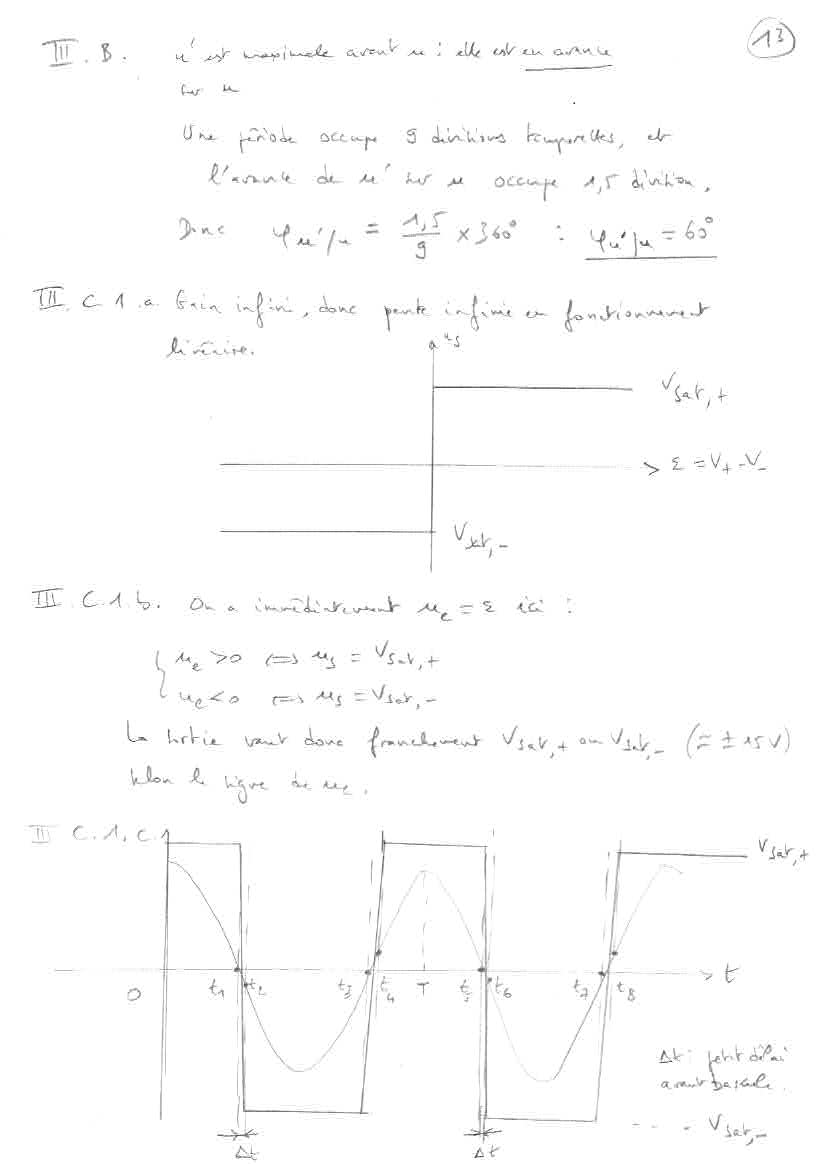 13
III. B. u' est maximale avant u : elle est en avance
sur u
Une période occupe 9 divitions temporelles, et
l'avance de u' sur u occupe 1,5 division.
Donc φu'/u = 1,5/9 × 360° : φu'/u = 60°
III. C. 1. a. Gain infini, donc pente infinie en fonctionnement
linéaire.
us
Vsat,+
ε = V+ - V-
Vsat,-
III. C. 1. b. On a immédiatement ue = ε ici :
ue > 0 ⟺ us = Vsat,+
ue < 0 ⟺ us = Vsat,-
La sortie vaut donc franchement Vsat,+ ou Vsat,- (≃ ± 15 V)
selon le signe de ue.
III C. 1. c. 1
Vsat,+
0 t1 t2 t3 t4 T t5 t6 t7 t8 t
Δt : petit délai
avant bascule.
Vsat,-
Δt Δt